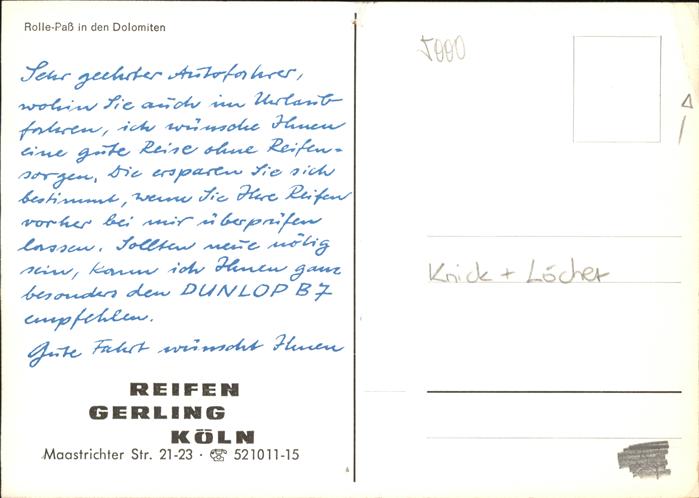 Rolle-Paß in den Dolomiten
Sehr geehrter Autofahrer,
wohin Sie auch im Urlaub
fahren, ich wünsche Ihnen
eine gute Reise ohne Reifen-
sorgen. Die ersparen Sie sich
bestimmt, wenn Sie Ihre Reifen
vorher bei mir überprüfen
lassen. Sollten neue nötig
sein, kann ich Ihnen ganz
besonders den DUNLOP B7
empfehlen.
Gute Fahrt wünscht Ihnen
REIFEN
GERLING
KÖLN
Maastrichter Str. 21-23 · ☎ 521011-15
5000
Knick + Löcher